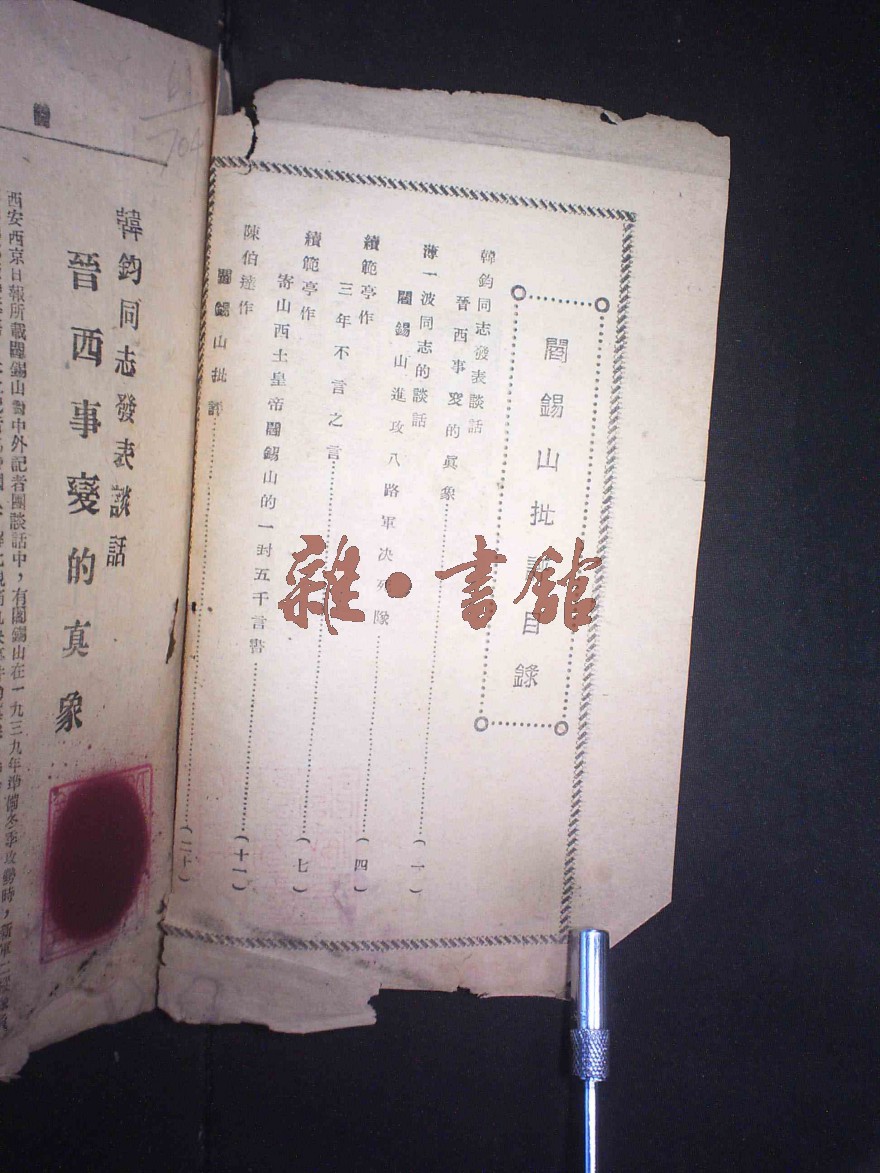 閻錫山批評目錄
韓鈞同志發表談話
晉西事變的眞象………(一)
薄一波同志的談話
閻錫山進攻八路軍决死隊………(四)
續範亭作
三年不言之言………(七)
續範亭作
寄山西土皇帝閻錫山的一封五千言書………(十一)
陳伯達作
閻錫山批評………(二十)
雜·書館
61
704
韓鈞同志發表談話
晉西事變的眞象
西安西京日報所載閻錫山對中外記者團談話中，有閻錫山在一九三九年準備冬季攻勢時，新軍